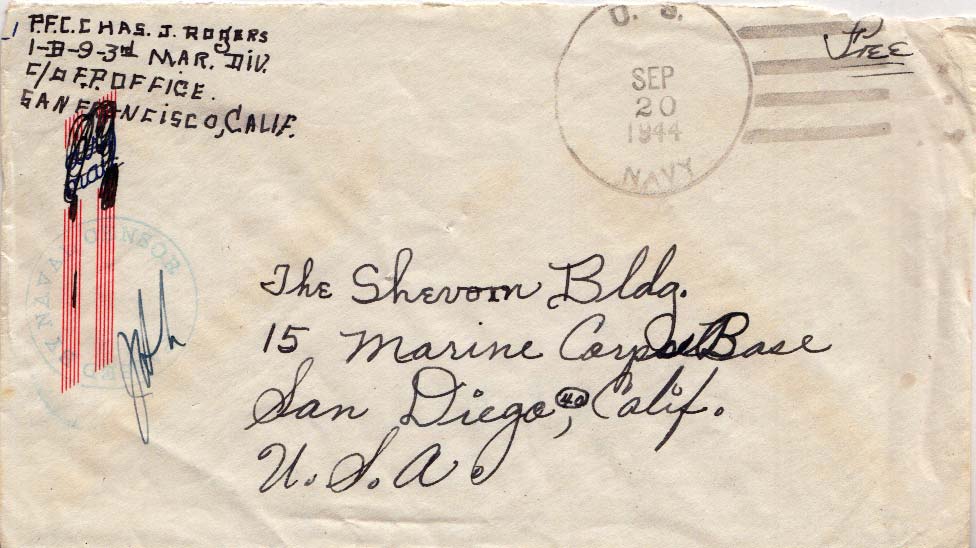 P.F.C. CHAS. J. ROgERS
1-B-9-3rd MAR. DIV.
C/O F.P. OFFICE.
SAN FRANCISCO, CALIF.
U. S.
SEP
20
1944
NAVY
Free
NAVAL CENSOR
The Shevorn Bldg.
15 Marine Corps Base
San Diego 40, Calif.
U. S. A.